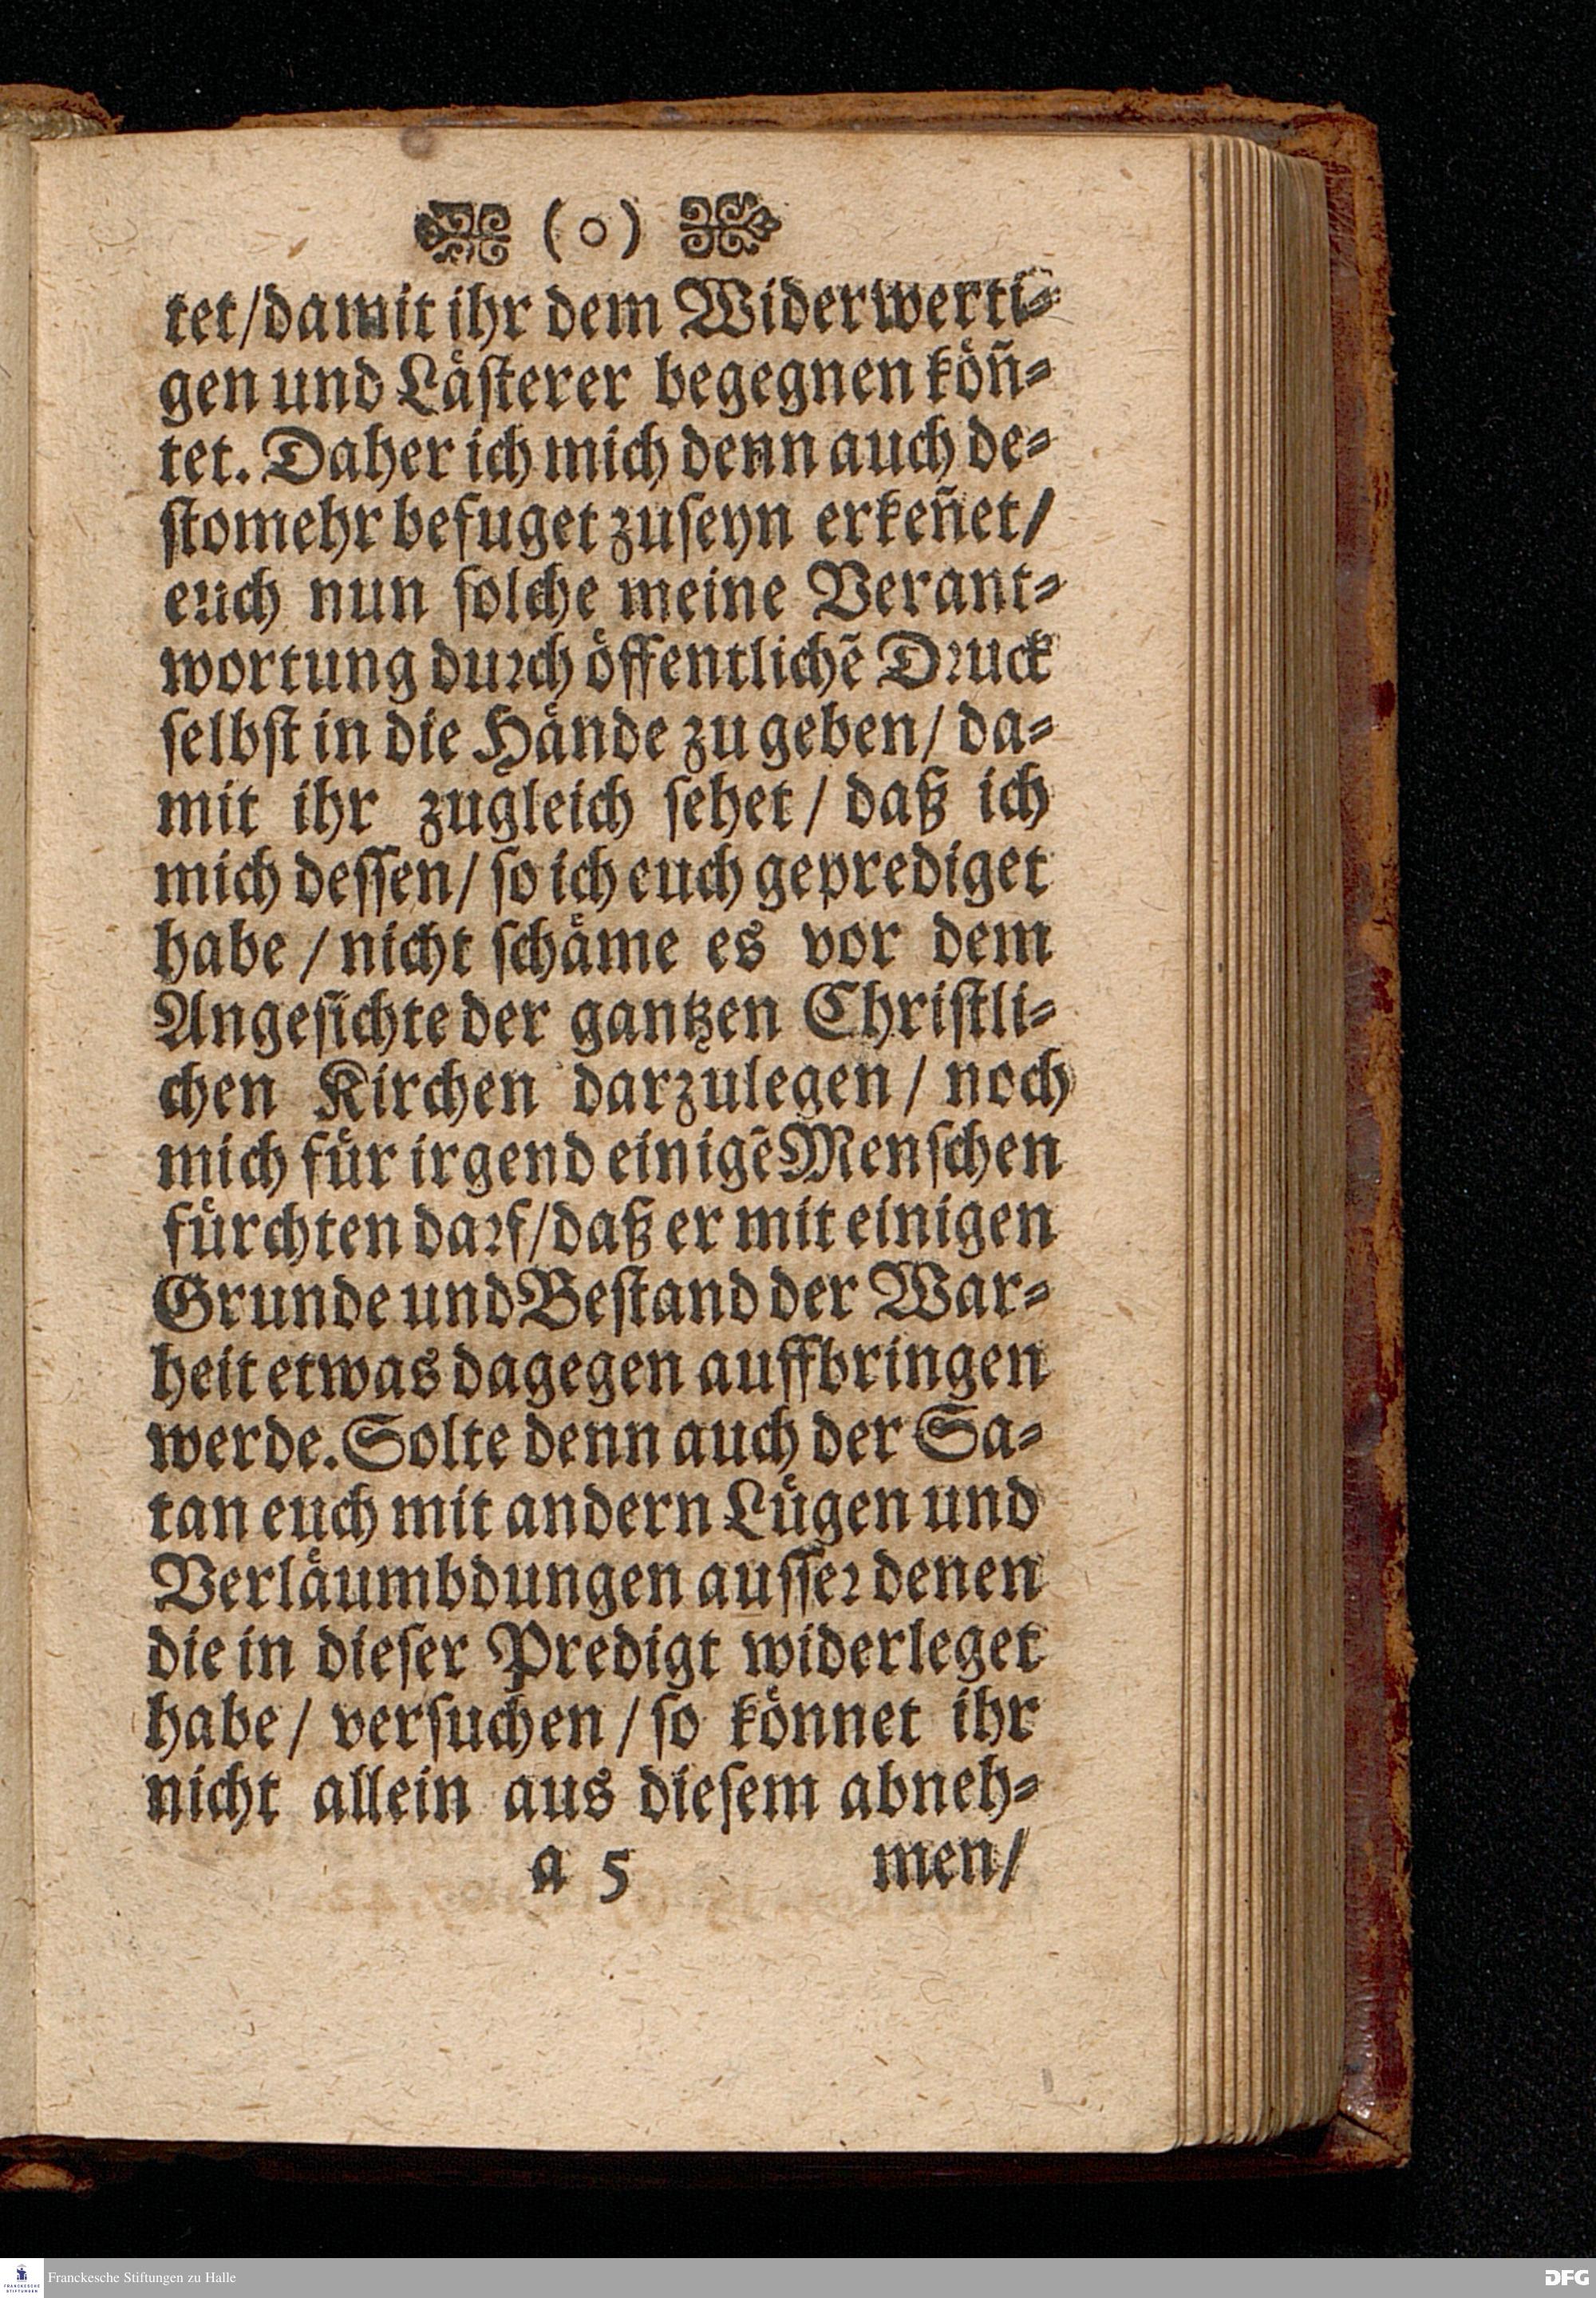 (o)
tet/damit ihr dem Widerwerti⸗
gen und Laͤſterer begegnen koͤñ⸗
tet. Daher ich mich denn auch de⸗
ſtomehr befuget zuſeyn erken̄et/
euch nun ſolche meine Verant⸗
wortung duꝛch oͤffentlichē Dꝛuck
ſelbſt in die Haͤnde zu geben/ da⸗
mit ihr zugleich ſehet/ daß ich
mich deſſen/ ſo ich euch geprediget
habe/ nicht ſchaͤme es vor dem
Angeſichte der gantzen Chriſtli⸗
chen Kirchen darzulegen/ noch
mich fuͤr irgend einigē Menſchen
fuͤrchten daꝛf/daß er mit einigen
Grunde und Beſtand der War⸗
heit etwas dagegen auffbringen
werde. Solte denn auch der Sa⸗
tan euch mit andern Luͤgen und
Verlaͤumbdungen auſſeꝛ denen
die in dieſer Predigt widerleget
habe/ verſuchen/ ſo koͤnnet ihr
nicht allein aus dieſem abneh⸗
a 5 men/
Franckesche Stiftungen zu Halle
FRANCKESCHE STIFTUNGEN
DFG